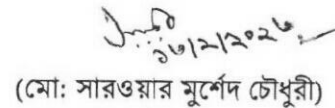 ১৬/২/২০২৬
(মো: সারওয়ার মুর্শেদ চৌধুরী)